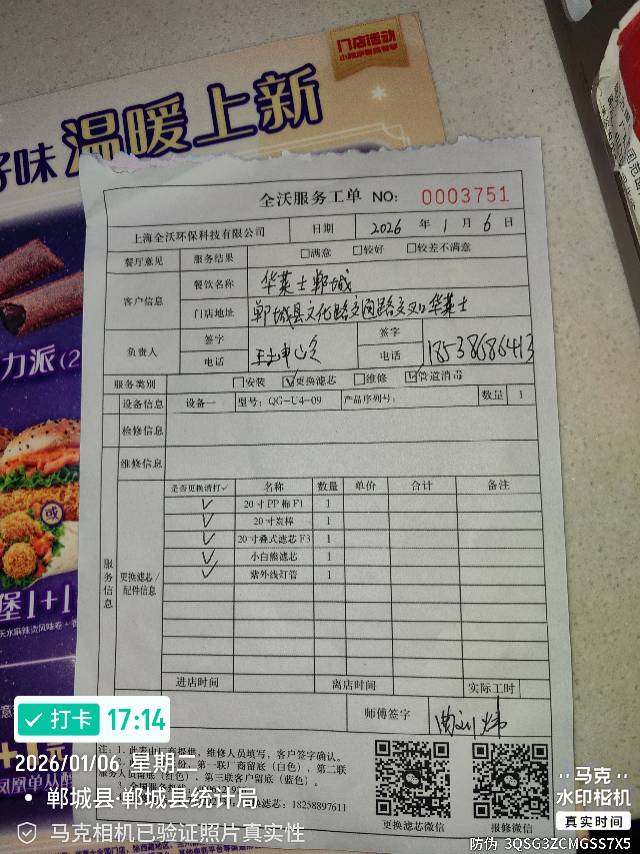 门店活动
好味 温暖上新
力派(2
或
堡1+1
全沃服务工单 NO: 0003751
上海全沃环保科技有限公司 日期 2026 年 1 月 6 日
餐厅意见 服务结果 □满意 □较好 □较差不满意
客户信息 餐饮名称 华莱士郸城
门店地址 郸城县文化路交通路交叉口华莱士
负责人 签字 签字
电话 电话 18538686413
服务类别 □安装 ☑更换滤芯 □维修 ☑管道消毒
设备信息 设备一 型号: QG-U4-09 产品序列号: 数量 1
检修信息
维修信息
服务信息
更换滤芯/配件信息
是否更换请打✓ 名称 数量 单价 合计 备注
✓ 20寸PP棉F1 1
✓ 20寸炭棒 1
✓ 20寸叠式滤芯F3 1
✓ 小白熊滤芯 1
✓ 紫外线灯管 1
进店时间 离店时间 实际工时
师傅签字
注: 1. 此表由厂商提供, 维修人员填写, 客户签字确认。
第一联厂商留底(白色)、第二联
服务人员留底(红色)、第三联客户留底(蓝色)。
18258897611
更换滤芯微信 报修微信
打卡 17:14
2026/01/06 星期二
郸城县·郸城县统计局
马克相机已验证照片真实性
马克
水印相机
真实时间
防伪 3QSG3ZCMGSS7X5